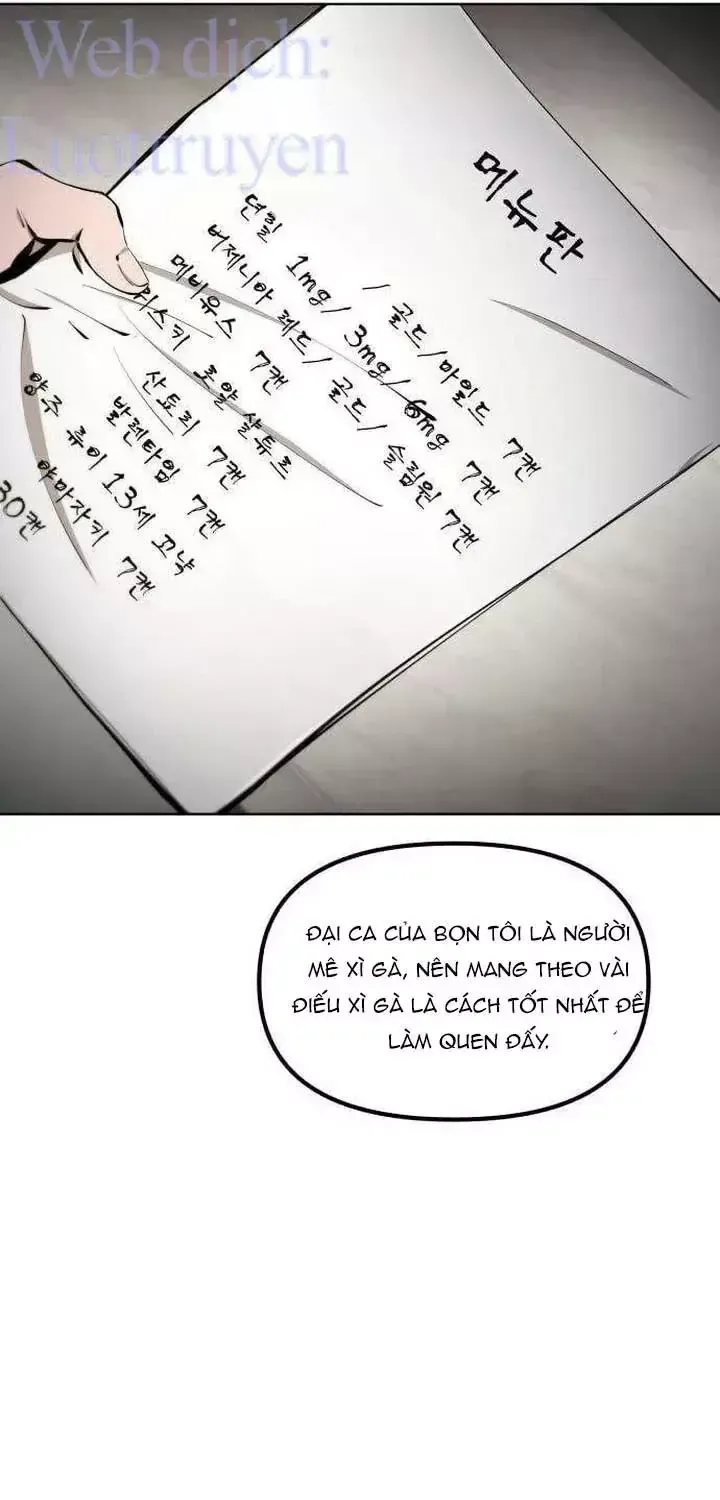 Web dịch:
Luottruyen
메뉴판
던힐 / 골드/마일드 7캔
1mg/ 3mg/6mg 7캔
버제니아 레드/ 골드/ 슬림원 7캔
메비우스 7캔
위스키 로얄 살듀르
산쵸리 7캔
발렌타임 7캔
양주 류이 13세 꼬냑
야마자키 7캔
30캔
ĐẠI CA CỦA BỌN TÔI LÀ NGƯỜI
MÊ XÌ GÀ, NÊN MANG THEO VÀI
ĐIẾU XÌ GÀ LÀ CÁCH TỐT NHẤT ĐỂ
LÀM QUEN ĐẤY.